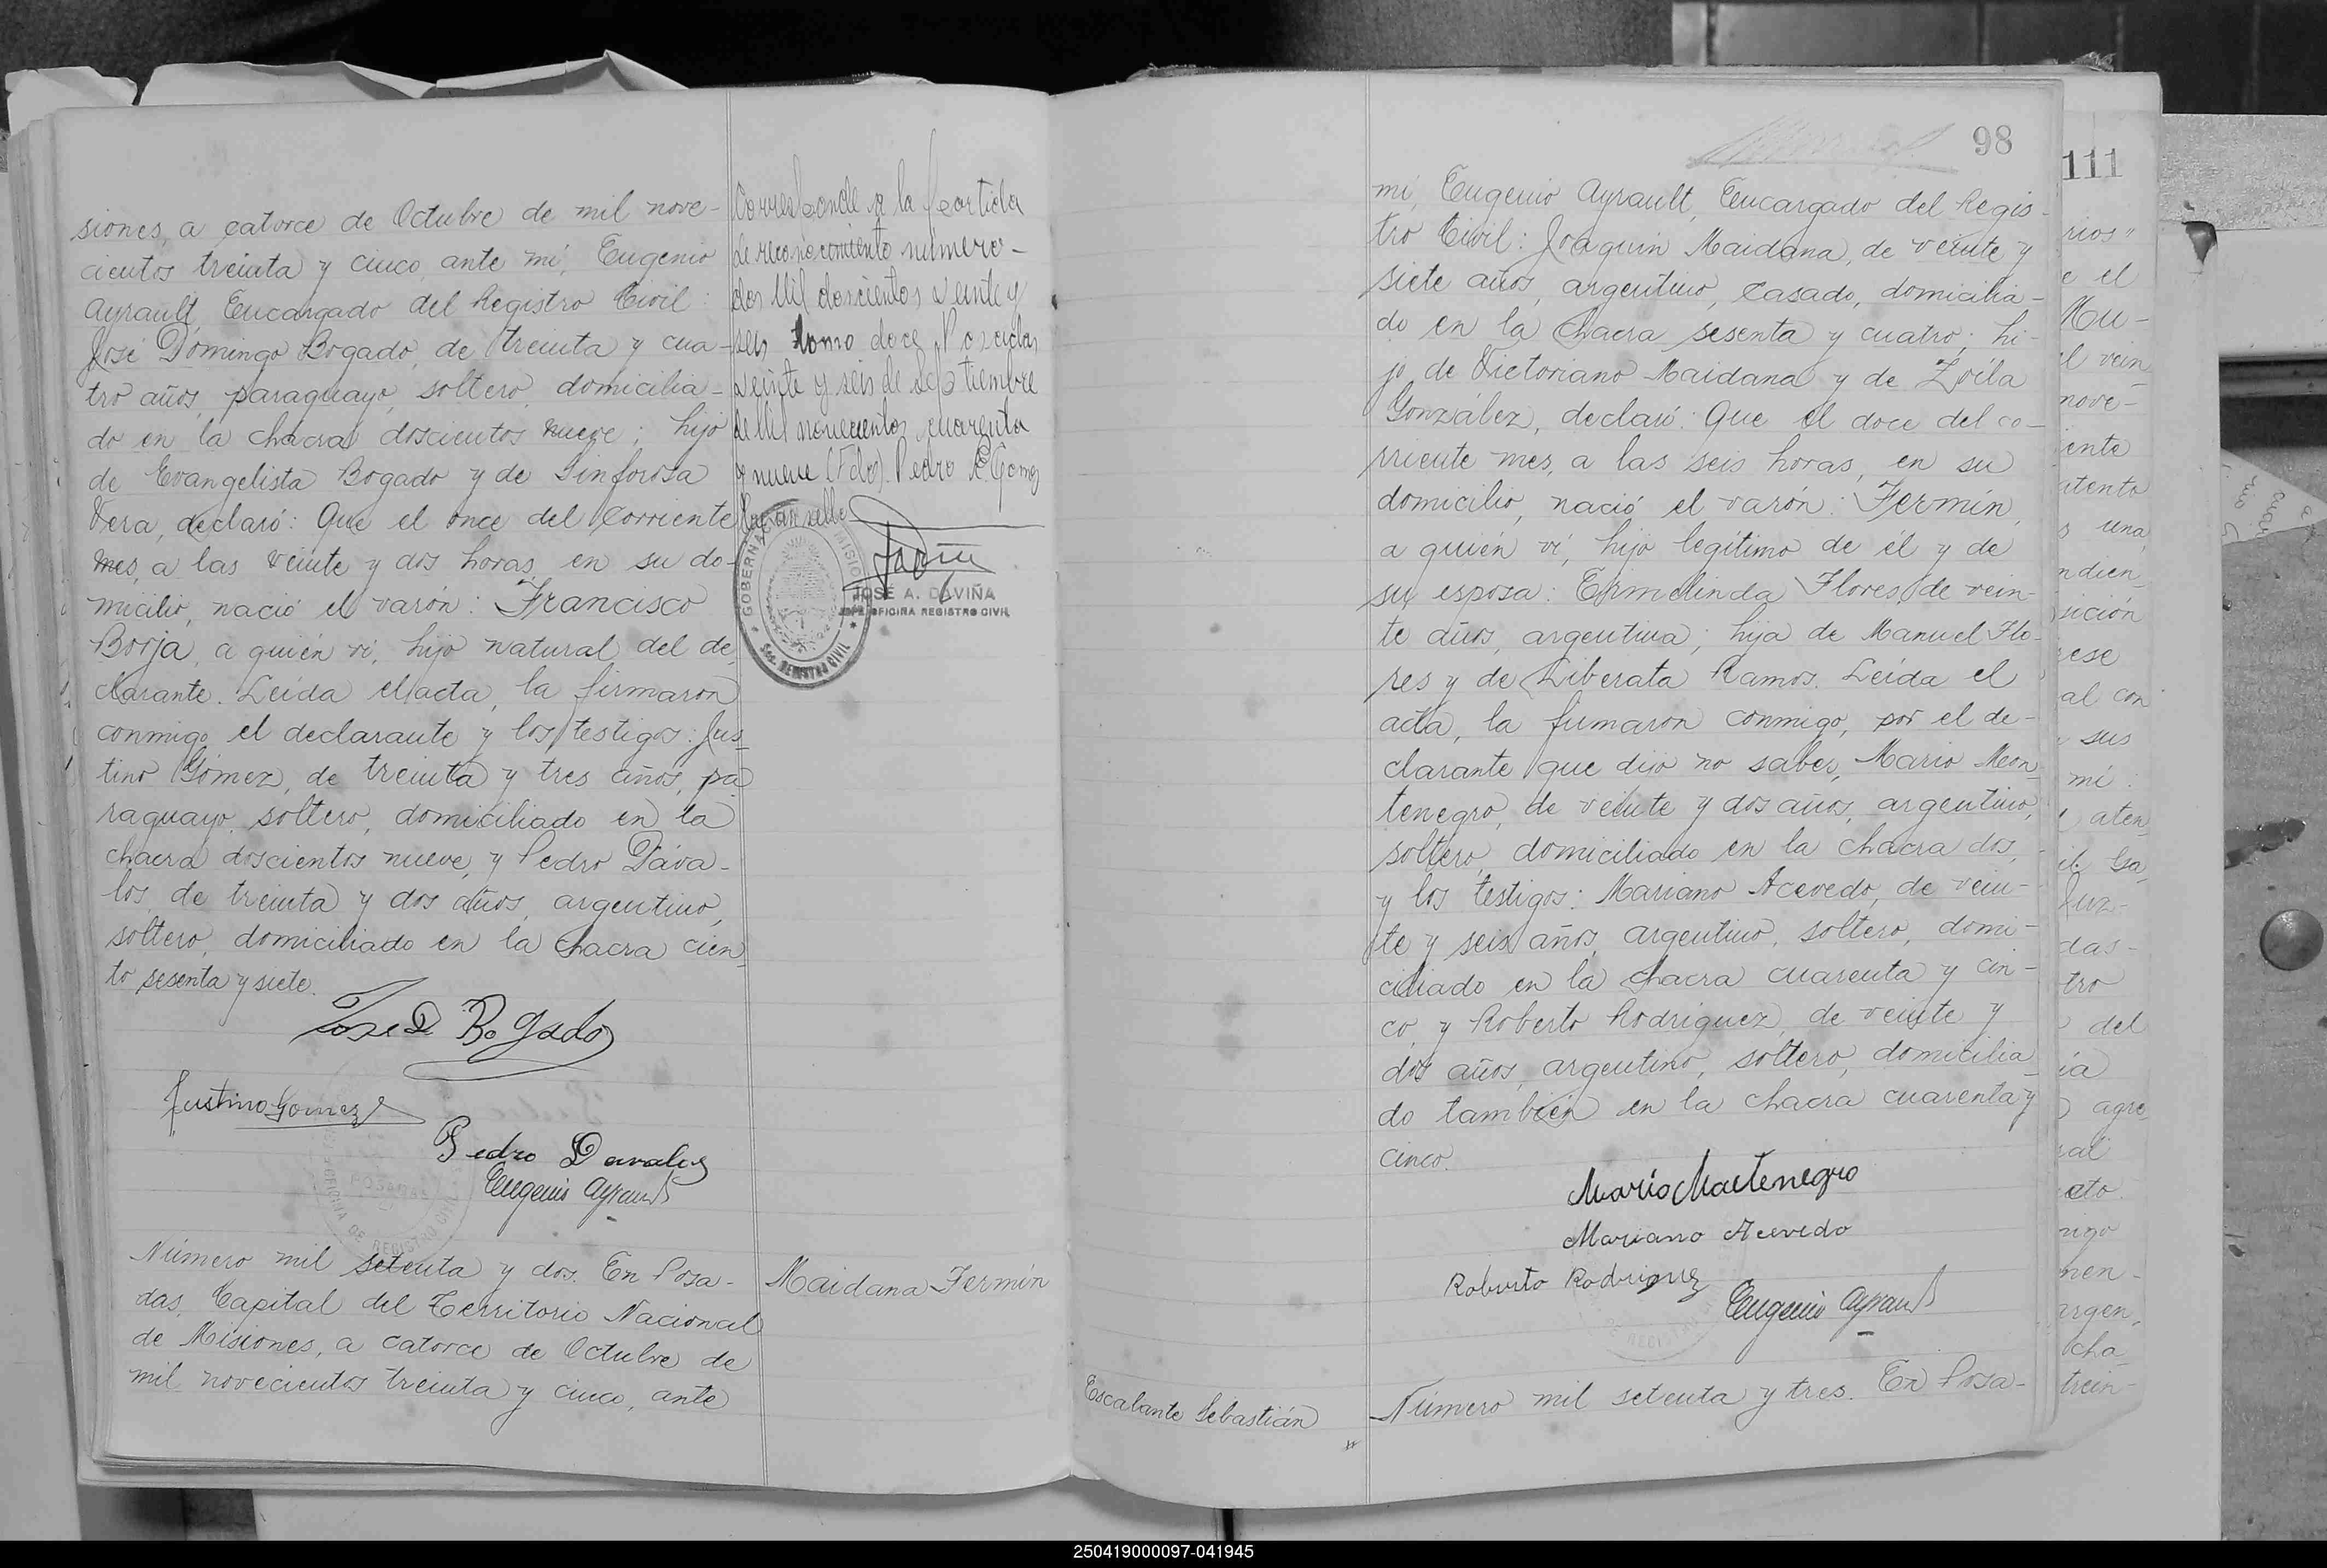 siones, a catorce de Octubre de mil nove-
cientos treinta y cinco, ante mí, Eugenio
Ayrault, Encargado del Registro Civil:
José Domingo Bogado, de treinta y cua-
tro años, paraguayo, soltero, domicilia-
do en la chacra doscientos nueve; hijo
de Evangelista Bogado y de Sinforosa
Vera, declaró: Que el once del corriente
mes, a las veinte y dos horas, en su do-
micilio, nació el varón: Francisco
Borja, a quién ví, hijo natural del de-
clarante. Leída el acta, la firmaron
conmigo el declarante y los testigos: Jus-
tino Gómez, de treinta y tres años, pa-
raguayo, soltero, domiciliado en la
chacra doscientos nueve, y Pedro Dáva-
los, de treinta y dos años, argentino,
soltero, domiciliado en la chacra cien-
to sesenta y siete.
Jose D Bogado
Justino Gomez
Pedro Davalos
Eugenio Ayrault
POSADAS
OFICINA DE REGISTRO CIVIL
Número mil setenta y dos. En Posa-
das, Capital del Territorio Nacional
de Misiones, a catorce de Octubre de
mil novecientos treinta y cinco, ante
Corresponde a la partida
de reconocimiento número-
dos Mil doscientos veinte y
seis tomo doce Posadas
veinte y seis de septiembre
de Mil novecientos cuarenta
y nueve (Fdo). Pedro E. Gomez
Hay un sello
JOSE A. DAVIÑA
JEFE OFICINA REGISTRO CIVIL
Sec. REGISTRO CIVIL
Maidana Fermín
98
mí, Eugenio Ayrault, Encargado del Regis-
tro Civil: Joaquín Maidana, de veinte y
siete años, argentino, casado, domicilia-
do en la chacra sesenta y cuatro; hi-
jo de Victoriano Maidana y de Zoila
González, declaró: Que el doce del co-
rriente mes, a las seis horas, en su
domicilio, nació el varón: Fermín,
a quién ví, hijo legítimo de él y de
su esposa: Ermelinda Flores, de vein-
te años, argentina; hija de Manuel Flo-
res y de Liberata Ramos. Leída el
acta, la firmaron conmigo, por el de-
clarante que dijo no saber, Mario Mon-
tenegro, de veinte y dos años, argentino,
soltero, domiciliado en la chacra dos,
y los testigos: Mariano Acevedo, de vein-
te y seis años, argentino, soltero, domi-
ciliado en la chacra cuarenta y cin-
co, y Roberto Rodríguez, de veinte y
dos años, argentino, soltero, domicilia-
do también en la chacra cuarenta y
cinco.
Mario Montenegro
Mariano Acevedo
Roberto Rodriguez
Eugenio Ayrault
Escalante Sebastián
Número mil setenta y tres. En Posa-
111
rios"
e el
Mu-
l vein
nove-
iente
atento
s una
ndien
sición
ese
al con
sus
mí:
aten
Juz-
das-
tro
del
ía
agre
ral
cto.
migo
men-
argen,
cha
trein-
250419000097-041945